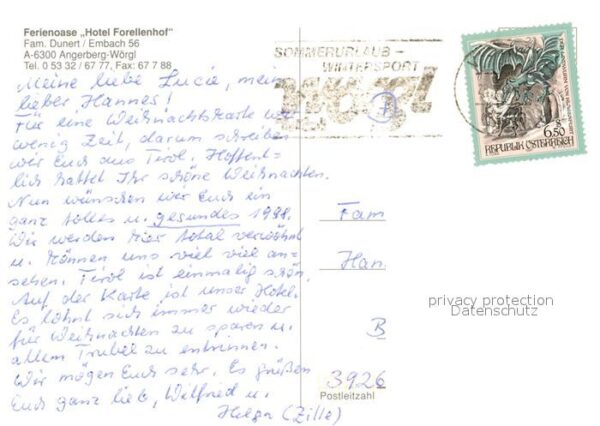 Ferienoase „Hotel Forellenhof“
Fam. Dunert / Embach 56
A-6300 Angerberg-Wörgl
Tel. 0 53 32 / 67 77, Fax: 67 7 88
SOMMERURLAUB –
WINTERSPORT
Wörgl
6.50
REPUBLIK ÖSTERREICH
Meine liebe Lucie, mein
lieber Hannes!
Für eine Weihnachtskarte war
wenig Zeit, darum schreiben
wir Euch aus Tirol. Hoffent-
lich hattet Ihr schöne Weihnachten.
Nun wünschen wir Euch ein
ganz tolles u. gesundes 1998.
Wir werden hier total verwöhnt
u. können uns viel viel an-
sehen. Tirol ist einmalig schön.
Auf der Karte ist unser Hotel.
Es lohnt sich immer wieder
für Weihnachten zu sparen u.
allem Trubel zu entrinnen.
Wir mögen Euch sehr. Es grüßen
Euch ganz lieb, Wilfried u.
Helga (Zille)
Fam
Han
B
3926
Postleitzahl
privacy protection
Datenschutz